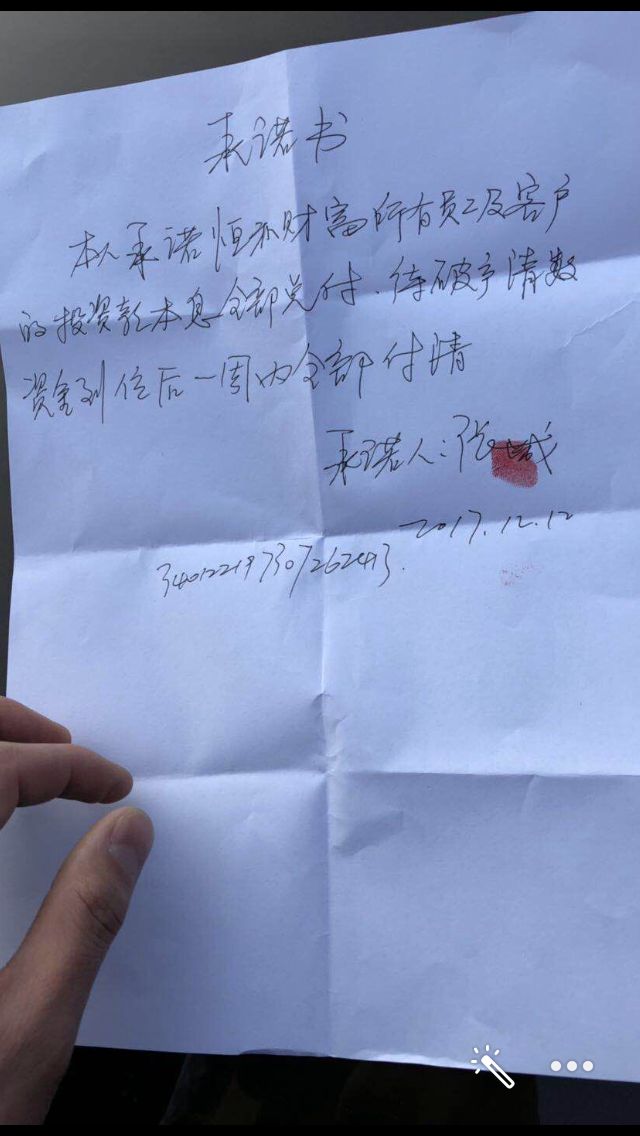 承诺书
本人承诺恒和财富所有员工及客户
的投资款本息全部兑付.待破产清数
资金到位后一周内全部付清
承诺人:张
2017.12.12